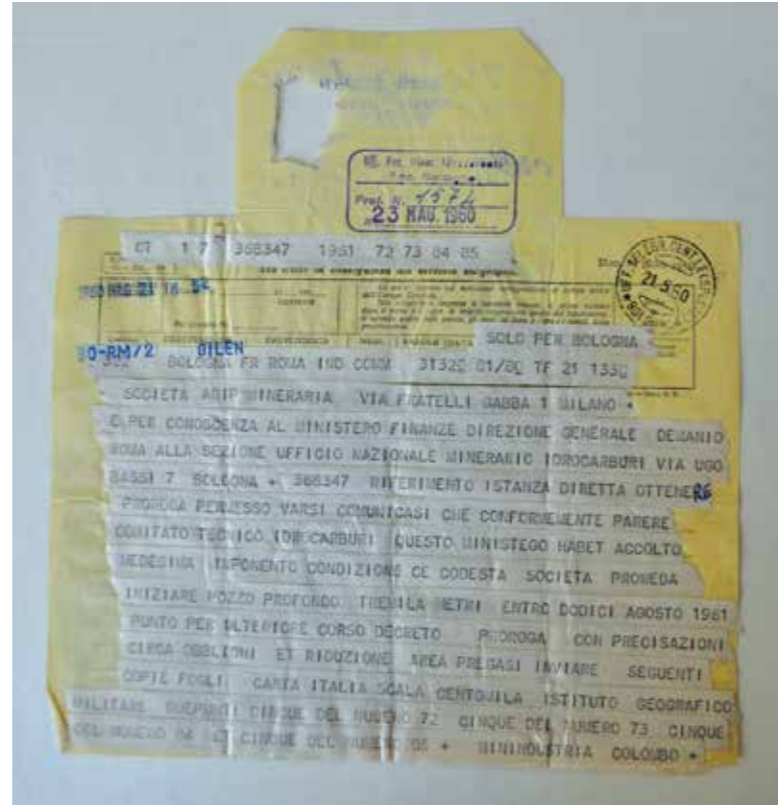 Prot. N. 1574
23 MAG. 1960
CT 17 368347 1961 72 73 84 85
21.5.60
1960 MAG 21 16
SOLO PER BOLOGNA
BO-RM/2 GILEN
BOLOGNA FR ROMA IND COMM 31320 81/80 TF 21 1330
+ SOCIETA AGIP MINERARIA VIA FRATELLI GABBA 1 MILANO +
E PER CONOSCENZA AL MINISTERO FINANZE DIREZIONE GENERALE DEMANIO
ROMA ALLA SEZIONE UFFICIO NAZIONALE MINERARIO IDROCARBURI VIA UGO
BASSI 7 BOLOGNA + 368347 RIFERIMENTO ISTANZA DIRETTA OTTENERE
PROROGA PERMESSO VARSI COMUNICASI CHE CONFORMEMENTE PARERE
COMITATO TECNICO IDROCARBURI QUESTO MINISTEGO HABET ACCOLTO
MEDESIMA IMPONENTO CONDIZIONE CE CODESTA SOCIETA PROWEDA
INIZIARE POZZO PROFONDO TREMILA METRI ENTRO DODICI AGOSTO 1961
PUNTO PER ULTERIORE CORSO DECRETO PROROGA CON PRECISAZIONI
CIRCA OBBLIONI ET RIDUZIONE AREA PREGASI INVIARE SEGUENTI
COPIE FOGLI CARTA ITALIA SCALA CENTOMILA ISTITUTO GEOGRAFICO
MILITARE DUEPUNTI CINQUE DEL NUMERO 72 CINQUE DEL NUMERO 73 CINQUE
DEL NUMERO 84 ET CINQUE DEL NUMERO 85 + MININDUSTRIA COLOMBO +